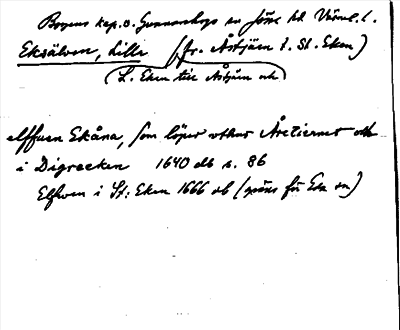 Bogens kap.s. Gunnarskogs sn Jösse hd Värml. l.
Eksälven, Lilla (fr. Åstjärn t. St. Eken)
(L. Eken till Åstjärn och
elffuen Ekåna, som löper uthur Åretiernet och
i Digreeken 1640 db s. 86
Elfwen i St: Eken 1666 db (gräns för Eda sn)